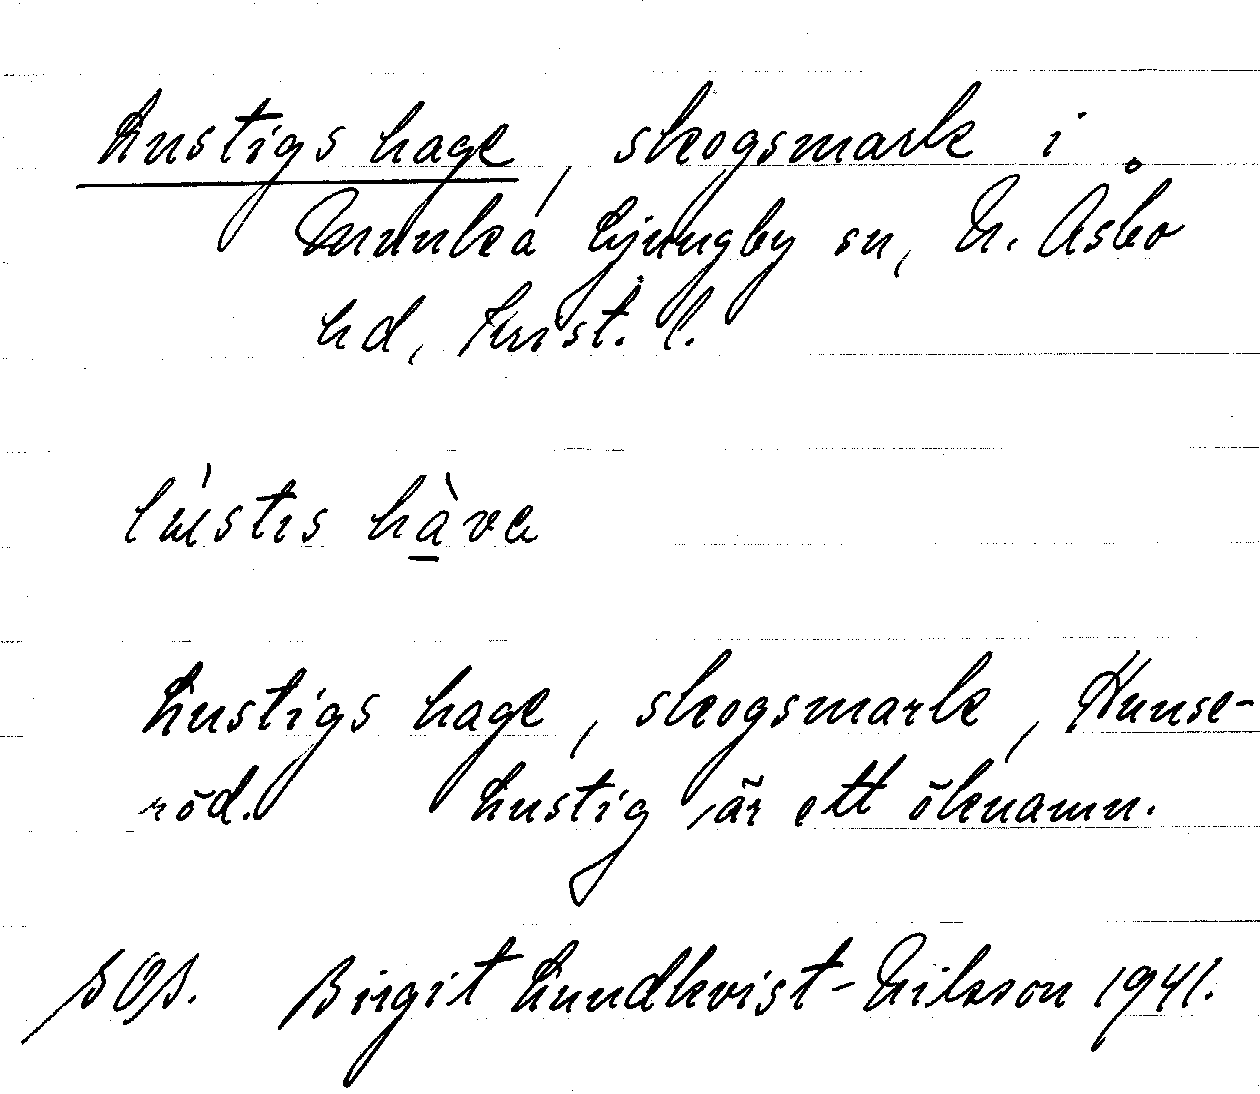 Lustigs hage, skogsmark i
Munka Ljungby sn, N. Åsbo
hd, Krist. l.
lústıs hàva
Lustigs hage, skogsmark, Hunse-
röd. Lustig är ett öknamn.
Birgit Lundkvist-Nilsson 1941.